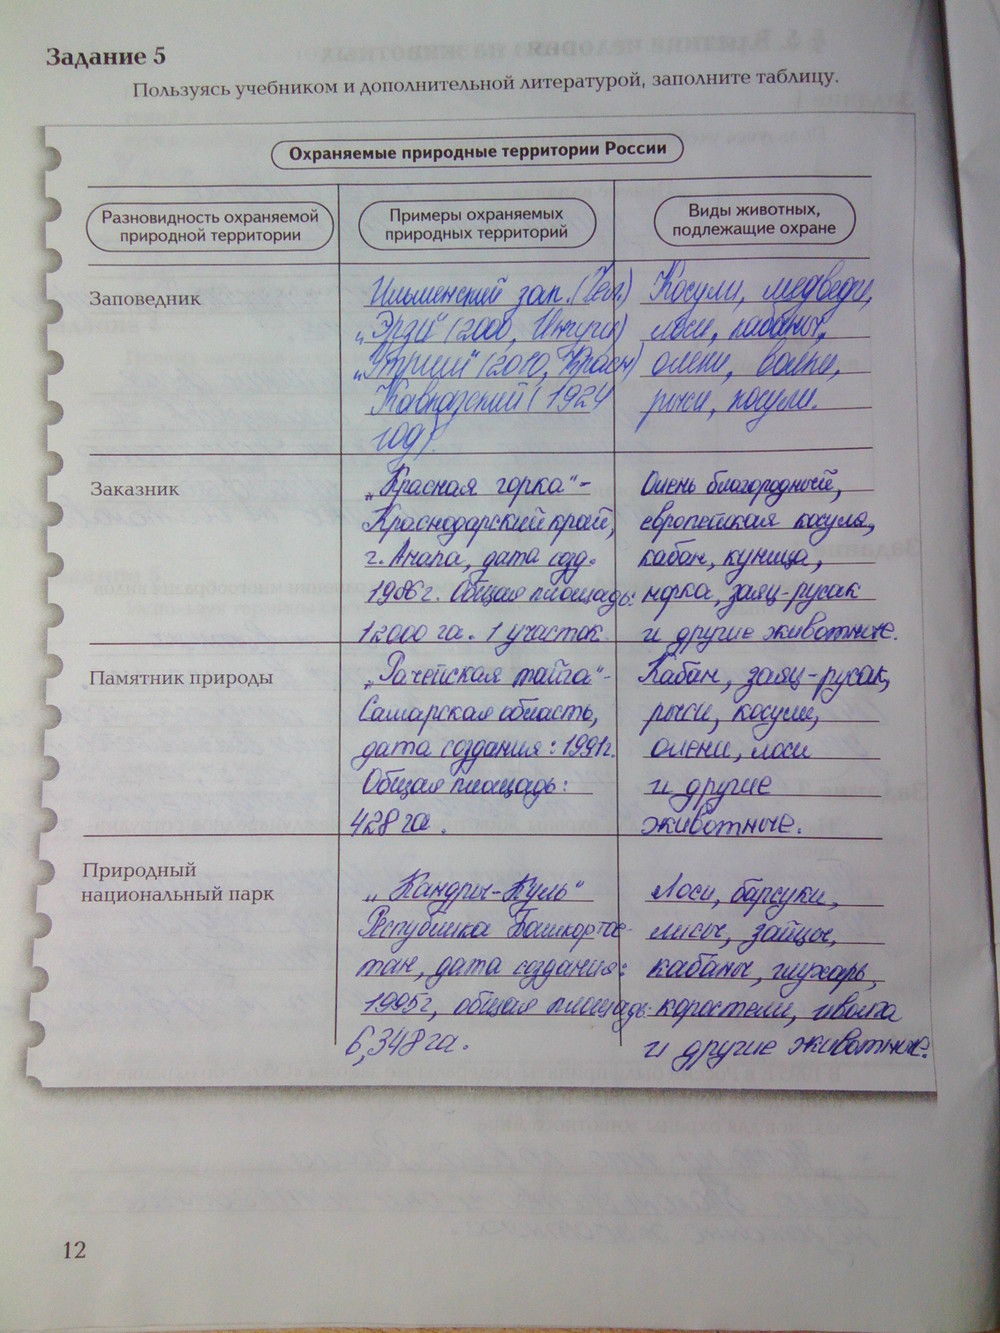 Задание 5
Пользуясь учебником и дополнительной литературой, заполните таблицу.
Охраняемые природные территории России
Разновидность охраняемой природной территории
Примеры охраняемых природных территорий
Виды животных, подлежащие охране
Заповедник
Ильменский зап. (Чел)
„Эрзи" (2000, Ингуш)
„Утриш" (2010, Красн)
Кавказский (1924
год).
Косули, медведи,
лоси, кабаны,
олени, волки,
рыси, косули.
Заказник
„Красная горка"-
Краснодарский край,
г. Анапа, дата созд.
1986г. Общая площадь:
12000 га. 1 участок.
Олень благородный,
европейская косуля,
кабан, куница,
норка, заяц-русак
и другие животные.
Памятник природы
„Рачейская тайга"-
Самарская область,
дата создания: 1991г.
Общая площадь:
428 га.
Кабан, заяц-русак,
рыси, косули,
олени, лоси
и другие
животные.
Природный
национальный парк
„Кандры-Куль"
Республика Башкортос-
тан, дата создания:
1995г, общая площадь:
6,348 га.
Лоси, барсуки,
лисы, зайцы,
кабаны, глухарь,
коростели, иволга
и другие животные.
12